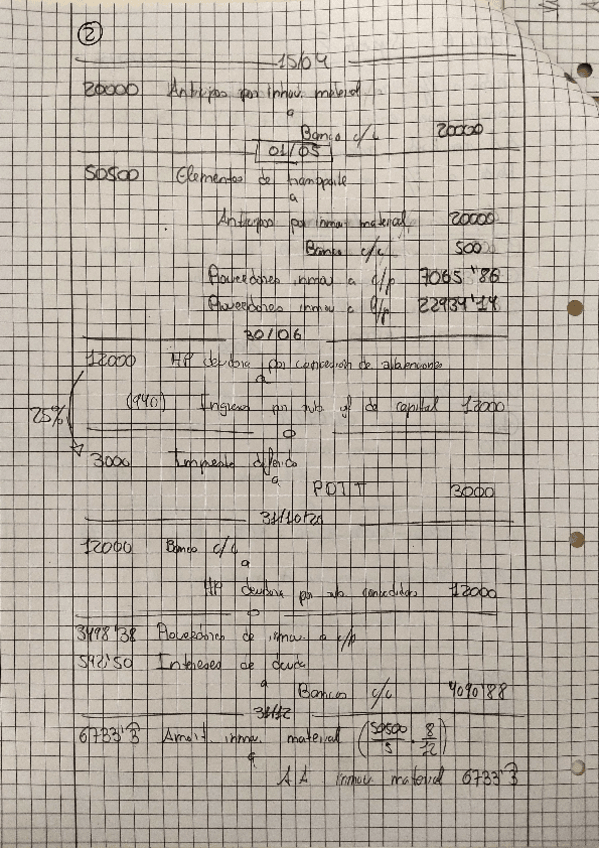 2
15/04
20000 Anticipos por inmov. material
a
Banco c/c 20000
01/05
50500 Elementos de transporte
a
Anticipos por inmov material 20000
Banco c/c 500
Proveedores inmov a c/p 7065'86
Proveedores inmov a l/p 22934'14
30/06
12000 HP deudora por concesion de subvenciones
a
(940) Ingresos por sub of de capital 12000
25%
3000 Impuesto diferido
a
PDTT 3000
31/10/20
12000 Banco c/c
a
HP deudora por sub concedidas 12000
3498'38 Proveedores de inmov. a c/p
592'50 Intereses de deuda
a
Bancos c/c 4090'88
31/12
6733'3 Amort. inmov. material (50500/5 · 8/12)
a
AA inmov material 6733'3